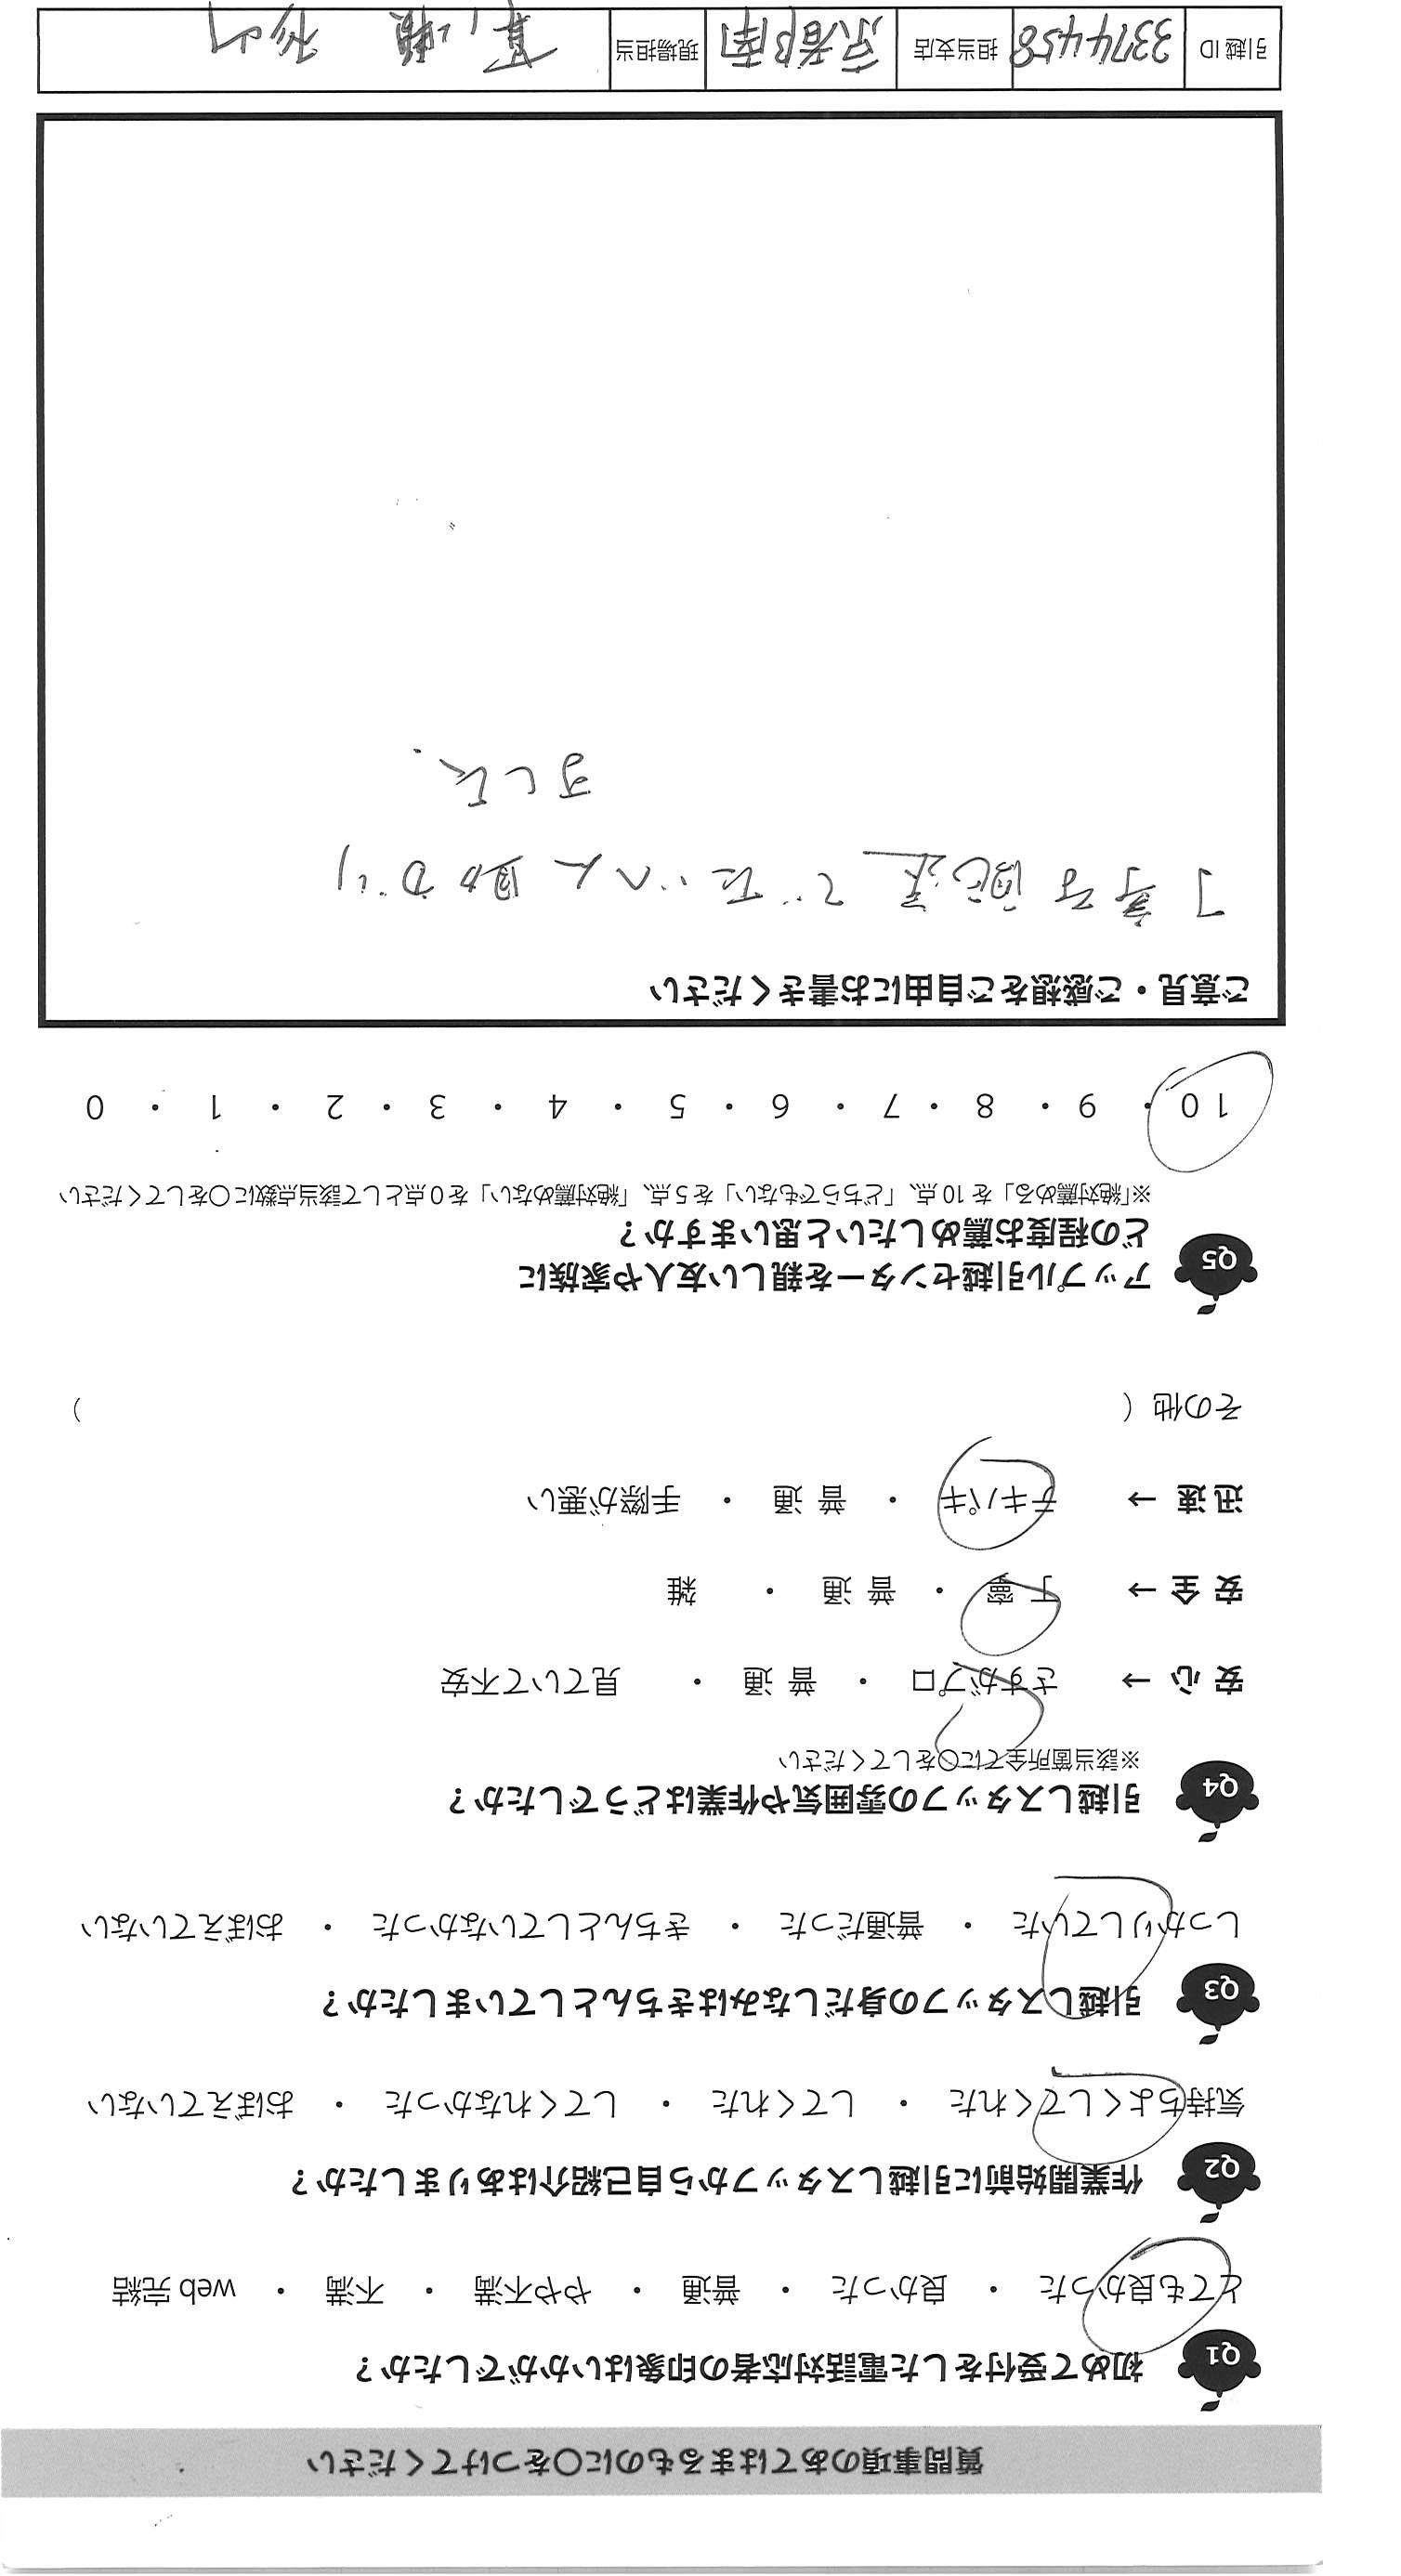 質問事項のあてはまるものに○をつけてください
Q1 初めて受付をした電話対応者の印象はいかがでしたか？
とても良かった ・ 良かった ・ 普通 ・ やや不満 ・ 不満 ・ web 完結
Q2 作業開始前に引越しスタッフから自己紹介はありましたか？
気持ちよくしてくれた ・ してくれた ・ してくれなかった ・ おぼえていない
Q3 引越しスタッフの身だしなみはきちんとしていましたか？
しっかりしていた ・ 普通だった ・ きちんとしていなかった ・ おぼえていない
Q4 引越しスタッフの雰囲気や作業はどうでしたか？
※該当箇所全てに○をしてください
安 心 → さすがプロ ・ 普 通 ・ 見ていて不安
安 全 → 丁 寧 ・ 普 通 ・ 雑
迅 速 → テキパキ ・ 普 通 ・ 手際が悪い
その他（ ）
Q5 アップル引越センターを親しい友人や家族に
どの程度お薦めしたいと思いますか？
※「絶対薦める」を 10 点、「どちらでもない」を 5 点、「絶対薦めない」を 0 点として該当点数に○をしてください
10 ・ 9 ・ 8 ・ 7 ・ 6 ・ 5 ・ 4 ・ 3 ・ 2 ・ 1 ・ 0
ご意見・ご感想をご自由にお書きください
丁寧な配送でたいへん助かり
ました.
引越 ID 3374458 担当支店 京都南 現場担当 杉山